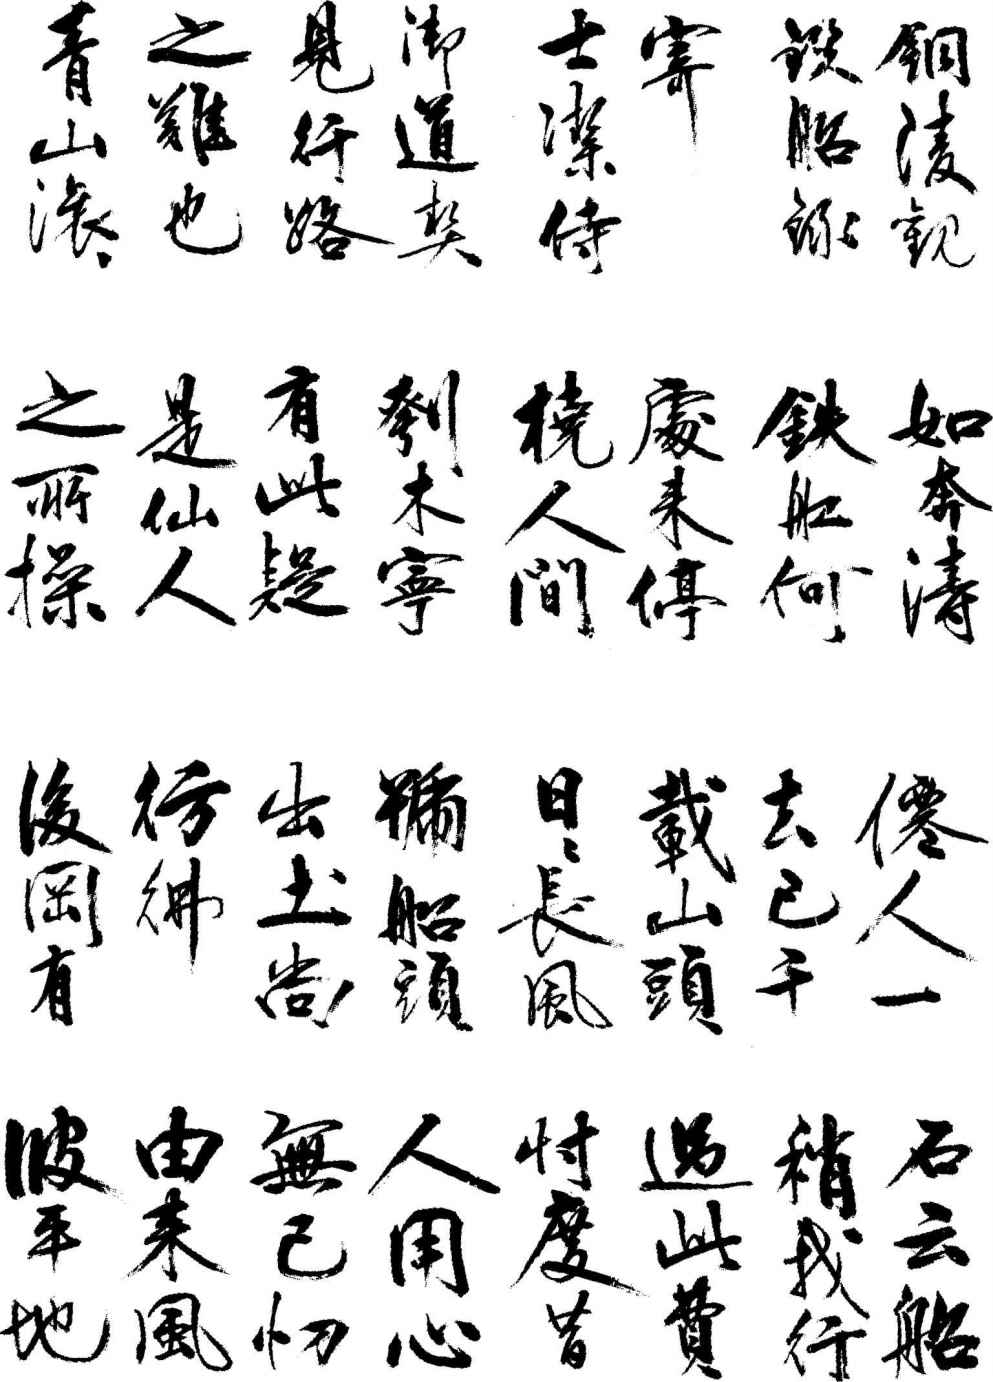 銅陵觀
鐵船錄
寄
士潔侍
御道契
見行路
之難也
青山滚〻
如奔濤
鉄船何
處来停
橈人間
刳木寧
有此疑
是仙人
之所操
僊人一
去已千
載山頭
日〻長風
號船頭
出土尚
彷彿
後岡有
石云船
稍我行
過此費
忖度昔
人用心
無已忉
由来風
波平地